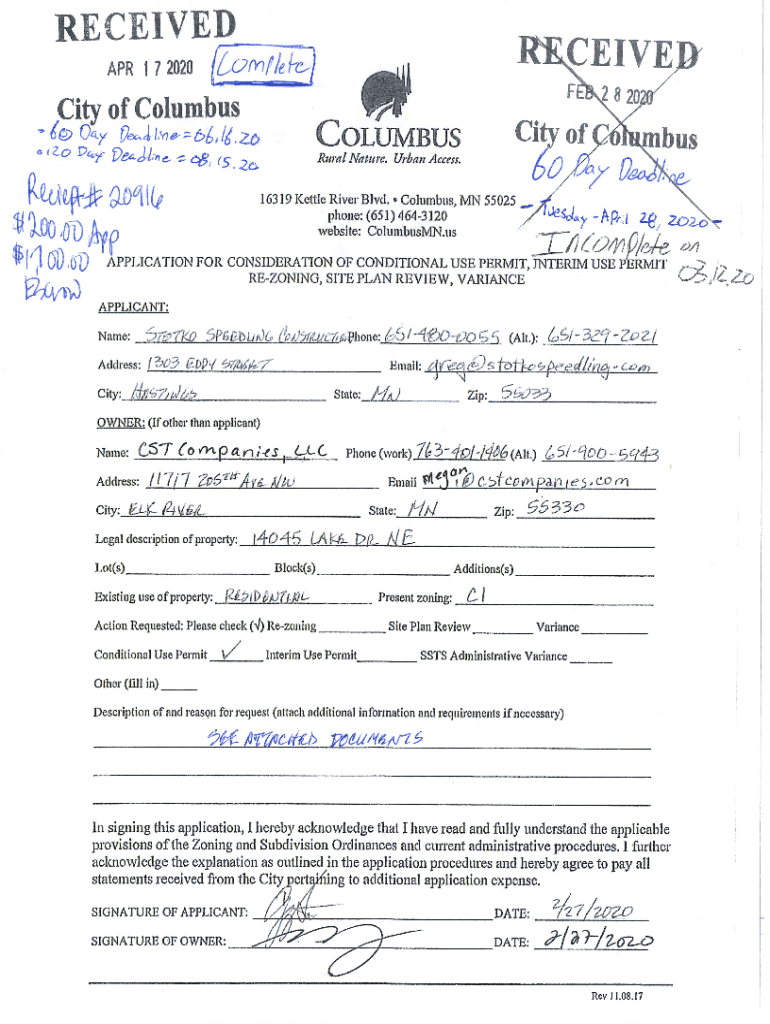 RECEIVED
APR 17 2020
Complete
City of Columbus
- 60 Day Deadline = 06.16.20
• 120 Day Deadline = 08.15.20
Reciept # 20916
$200.00 App
$1700.00
Escrow
COLUMBUS
Rural Nature. Urban Access.
RECEIVED
FEB 28 2020
City of Columbus
60 Day Deadline
- Tuesday - April 28, 2020 -
INCOMplete on
03.12.20
16319 Kettle River Blvd. • Columbus, MN 55025
phone: (651) 464-3120
website: ColumbusMN.us
APPLICATION FOR CONSIDERATION OF CONDITIONAL USE PERMIT, INTERIM USE PERMIT
RE-ZONING, SITE PLAN REVIEW, VARIANCE
APPLICANT:
Name: STOTKO SPEEDLING CONSTRUCTION Phone: 651-480-0055 (Alt.): 651-329-2021
Address: 1303 EDDY STREET Email: greg@stotkospeedling.com
City: HASTINGS State: MN Zip: 55033
OWNER: (If other than applicant)
Name: CST Companies, LLC Phone (work) 763-401-1406 (Alt.) 651-900-5943
Address: 11717 205TH AVE NW Email megan@cstcompanies.com
City: ELK RIVER State: MN Zip: 55330
Legal description of property: 14045 LAKE DR NE
Lot(s) Block(s) Additions(s)
Existing use of property: RESIDENTIAL Present zoning: C1
Action Requested: Please check (√) Re-zoning Site Plan Review Variance
Conditional Use Permit ✓ Interim Use Permit SSTS Administrative Variance
Other (fill in)
Description of and reason for request (attach additional information and requirements if necessary)
SEE ATTACHED DOCUMENTS
In signing this application, I hereby acknowledge that I have read and fully understand the applicable
provisions of the Zoning and Subdivision Ordinances and current administrative procedures. I further
acknowledge the explanation as outlined in the application procedures and hereby agree to pay all
statements received from the City pertaining to additional application expense.
SIGNATURE OF APPLICANT: DATE: 2/27/2020
SIGNATURE OF OWNER: DATE: 2/27/2020
Rev 11.08.17